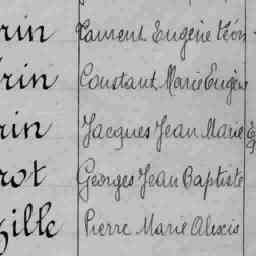 rin Laurent Eugène Léon
rin Constant Marie Eugène
rin Jacques Jean Marie
rot Georges Jean Baptiste
ille Pierre Marie Alexis